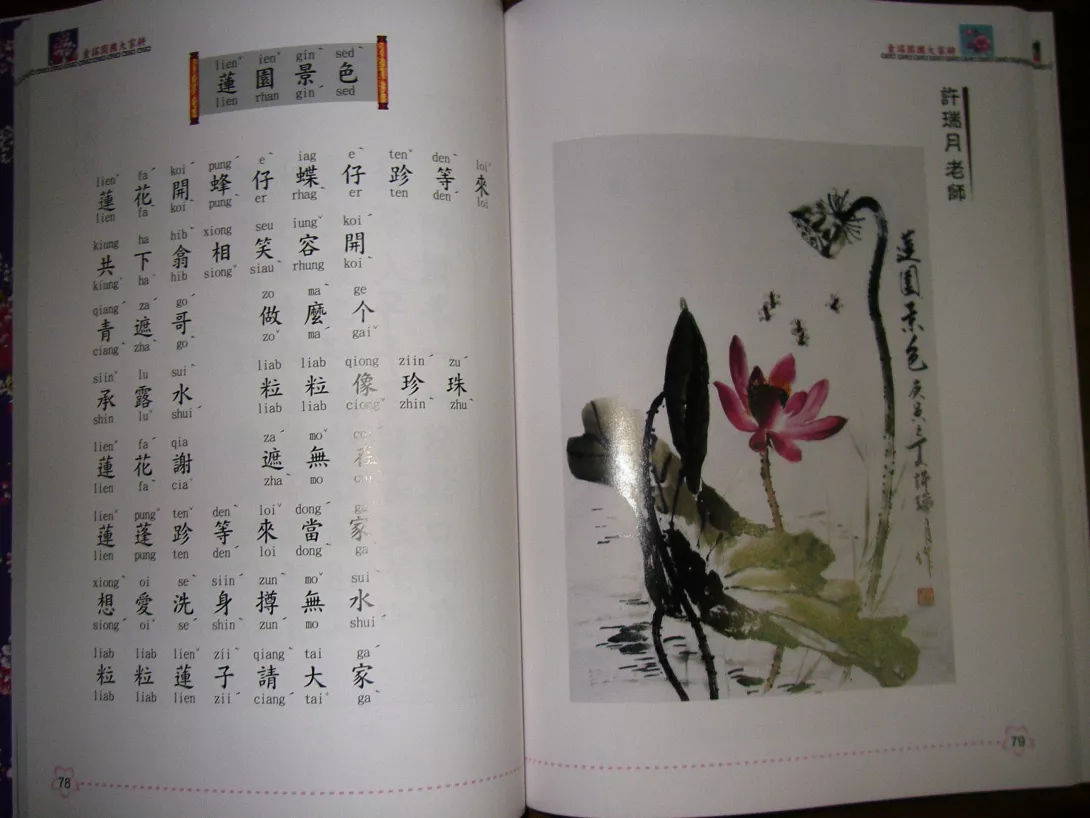 lienˇ ienˇ ginˋ sedˋ
蓮園景色
lien rhan ginˊ sed
lienˇ faˊ koiˊ pungˊ eˋ iag eˋ tenˇ denˋ loiˇ
蓮花開蜂仔蝶仔跈等來
lien faˋ koiˋ pungˋ er rhagˋ er ten denˊ loi
kiung ha hibˋ xiong seu iungˇ koiˊ
共下翕相笑容開
kiungˊ haˊ hib siongˇ siauˋ rhung koiˋ
qiangˊ zaˊ goˊ zo maˋ ge
青遮哥 做麼个
ciangˋ zhaˋ goˋ zoˇ maˊ gaiˇ
siinˇ lu suiˋ liab liab qiong ziinˊ zuˊ
承露水 粒粒像珍珠
shin luˇ shuiˊ liab liab ciongˇ zhinˋ zhuˋ
lienˇ faˊ qia zaˊ moˇ
蓮花謝 遮無
lien faˋ ciaˊ zhaˋ mo
lienˇ pungˇ tenˇ denˋ loiˇ dongˊ gaˊ
蓮蓬跈等來當家
lien pung ten denˊ loi dongˋ ga
xiongˋ oi seˋ siinˊ zunˋ moˇ suiˋ
想愛洗身撙無水
siongˊ oiˇ seˊ shinˋ zunˊ mo shuiˊ
liab liab lienˇ ziiˋ qiangˋ tai gaˊ
粒粒蓮子請大家
liab liab lien ziiˊ ciangˊ taiˇ gaˋ
78
許瑞月老師
蓮園景色 庚寅之夏 許瑞月作
79